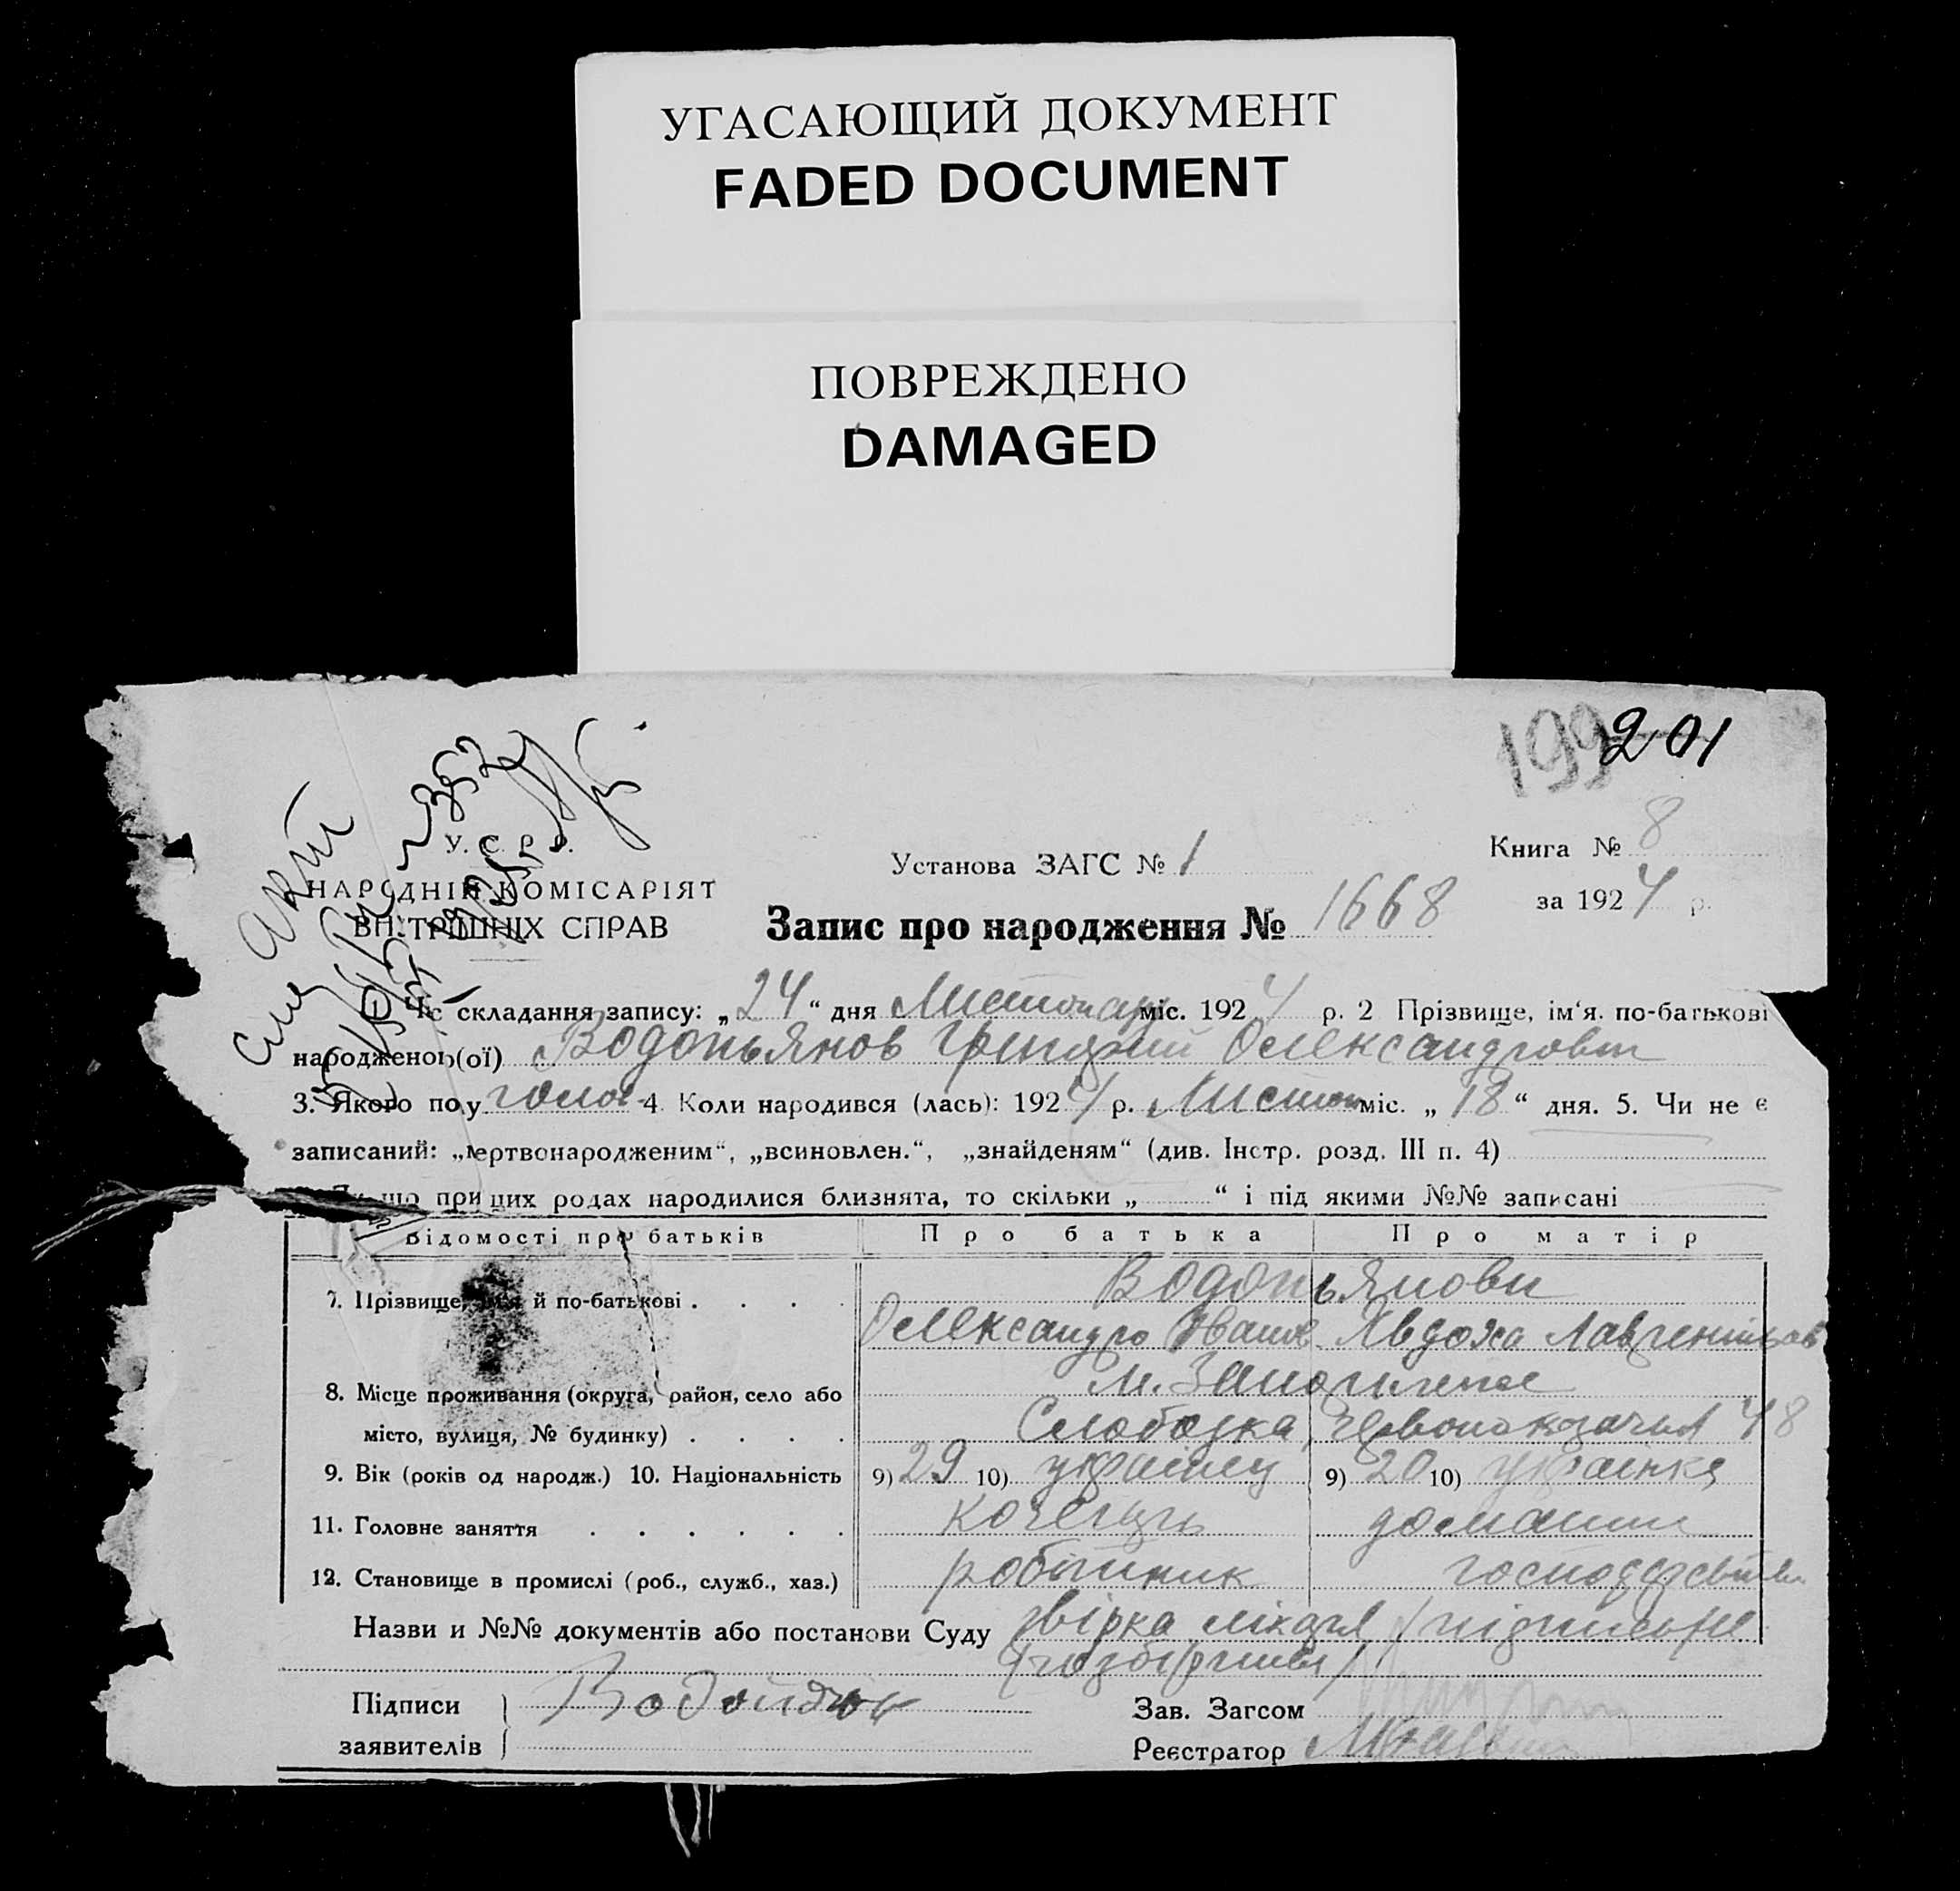 УГАСАЮЩИЙ ДОКУМЕНТ
FADED DOCUMENT
ПОВРЕЖДЕНО
DAMAGED
199 201
У. С. Р. Р.
НАРОДНІЙ КОМІСАРІЯТ
ВНУТРІШНІХ СПРАВ
акт
Установа ЗАГС № 1
Книга № 8
за 1924 р.
Запис про народження № 1668
1. Час складання запису: „24“ дня Листопаду міс. 1924 р. 2 Прізвище, ім‘я. по-батькові
народженого(ої) Водопьянов Григорий Олександрович
3. Якого полу голов. 4. Коли народився (лась): 1924 р. Листоп міс. „18“ дня. 5. Чи не є
записаний: „мертвонародженим“, „всиновлен.“, „знайденям“ (див. Інстр. розд. III п. 4)
що при цих родах народилися близнята, то скільки „ “ і під якими №№ записані
Відомості про батьків Про батька Про матір
7. Прізвище, ім‘я й по-батькові . . . . Водопьянови
Олександро Іванов. Явдоха Лаврентьев
8. Місце проживання (округа, район, село або м. Запоріжже
місто, вулиця, № будинку) . . . . Слободка, Червонокозача 48
9. Вік (років од народж.) 10. Національність 9) 29 10) українец 9) 20 10) українка
11. Головне заняття . . . . . . кочегарь домашнє
12. Становище в промислі (роб., служб., хаз.) робітник господарство
Назви и №№ документів або постанови Суду звірка лікаря
Підписи
заявителів
Зав. Загсом
Реєстратор